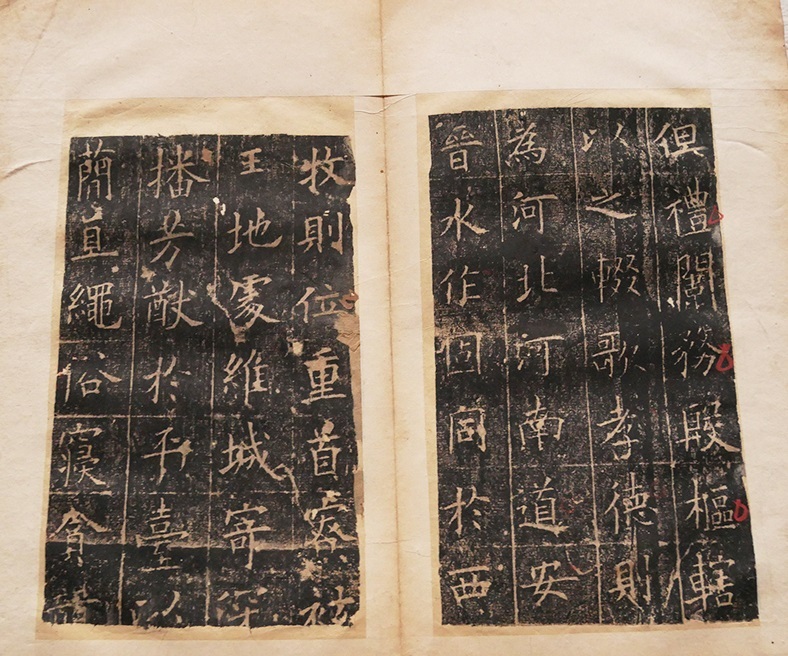 俱禮闈務殷樞轄
以之輟歌孝德則
為河北河南道安
晉水作固同於西
牧則位重首寮
王地處維城寄深
播芳猷於平臺以
蕳直繩俗寢貪